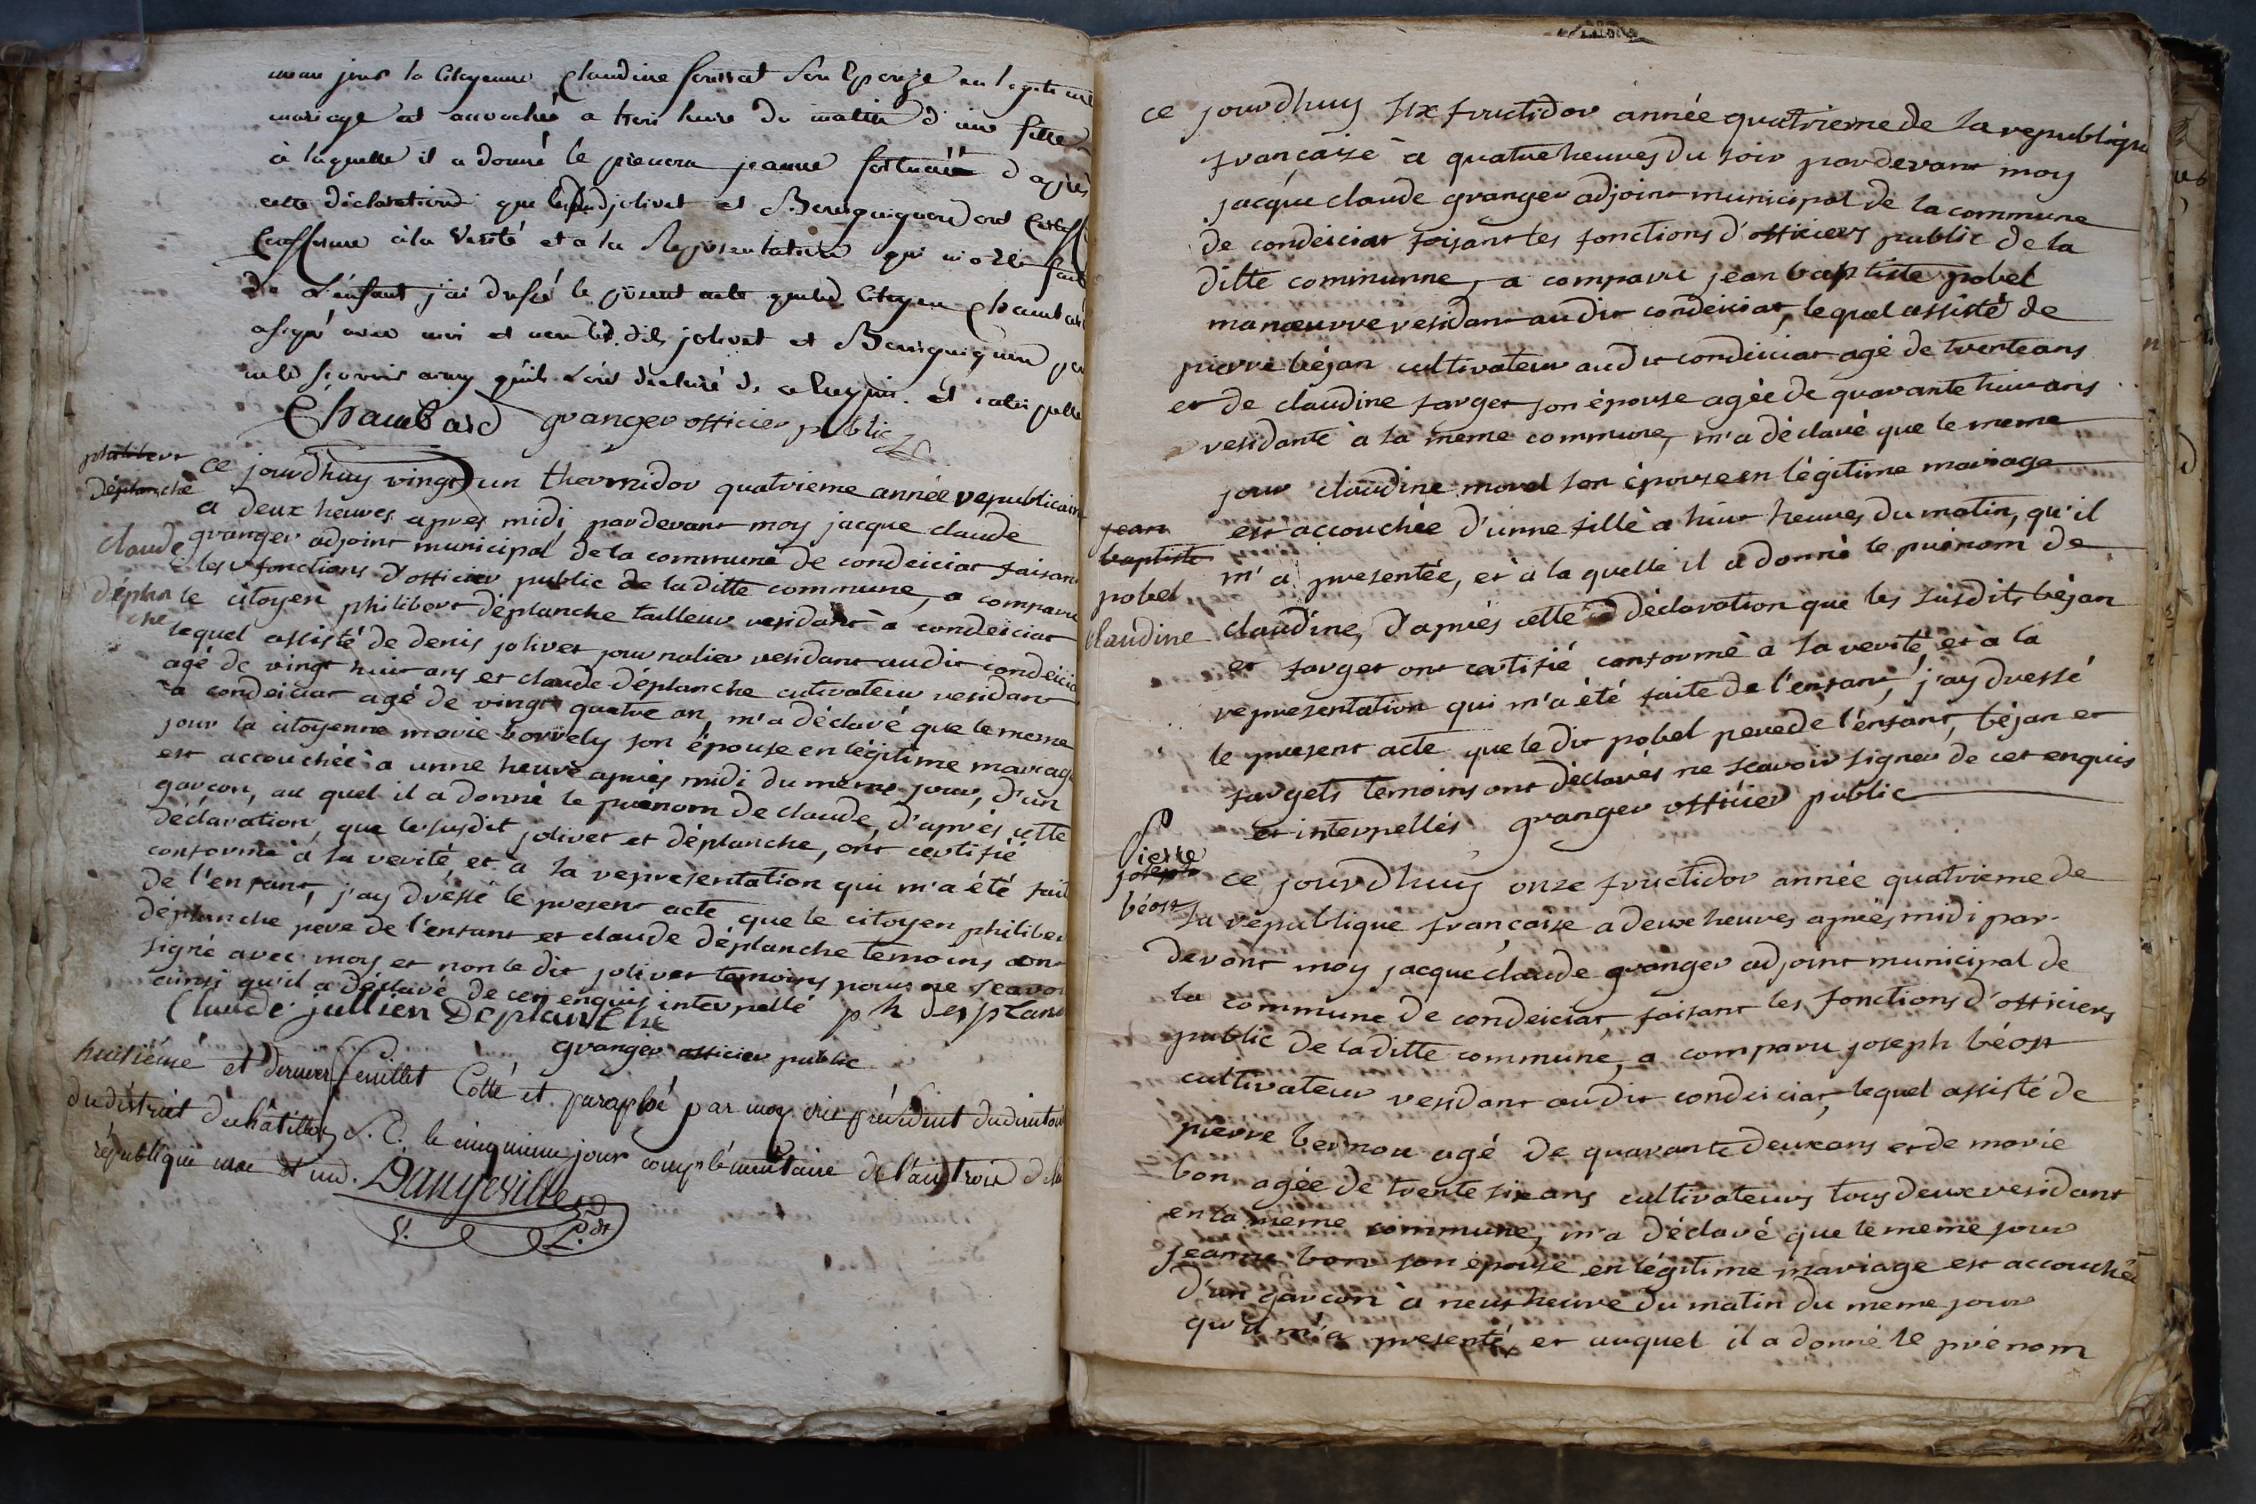 jour la Citoyenne Claudine son Epouze en legitime
mariage est accouchée a trois heure du matin d'une fille
à laquelle il a donné le prenom jeanne fortunée d'après
cette déclaration que lesdits jolivet et Bourguignon ont
Conforme à la Verité et a la Representation qui m'a été faite
de L'enfant, j'ai dressé le présent acte que led. Citoyen Chambard
a signé avec moi et non les dits jolivet et Bourguignon
Chambard granger officier public
philibert
Déplanche
claude
déplan
che
ce jourdhuy vingt un thermidor quatrieme année republicain
a deux heures apres midi, pardevant moy jacque claude
granger adjoint municipal de la commune de condeiciat faisant
les fonctions d'officier public de laditte commune, a comparu
le citoyen philibert déplanche tailleur residant à condeiciat
lequel assisté de denis jolivet journalier residant audit condeicia
agé de vingt huit ans et claude déplanche cutivateur residant
a condeiciat agé de vingt quatre an, m'a déclaré que le meme
jour la citoyenne marie borrely son épouse en legitime mariage
est accouchée à unne heure après midi du meme jour, d'un
garcon, au quel il a donné le prénom de claude, d'après cette
déclaration, que le susdit jolivet et déplanche, ont certifié
conforme à la verité, et a la representation qui m'a été fait
de l'enfant, j'ay dréssé le present acte que le citoyen philiber
déplanche pere de l'enfant et claude déplanche temoins ont
signé avec moy et non le dit jolivet temoins pour ne scavoi
ainsi qu'il a déclaré de cet enquis interpellé
Claude jullien Deplanche ph desplanc
granger officier public
huitiéme et dernier feuillet Cotté et paraphé par moy président du directoir
du district de châtillon S. C. le cinquieme jour complémentaire de l'an trois de la
république une et ind. Dangeville
V. P.dt
ce jourdhuy six fructidor année quatrieme de la republique
française à quatre heures du soir pardevant moy
jacque claude granger adjoint municipal de la commune
de condeiciat faisant les fonctions d'officiers public de la
ditte communne, a comparu jean baptiste pobel
manœuvre residant audit condeiciat, lequel assisté de
pierre béjan cultivateur audit condeiciat agé de trente ans
et de claudine farget son épouse agée de quarante huit ans
residante à la meme commune, m'a déclaré que le meme
jour claudine morel son épouse en légitime mariage
est accouchée d'unne fille a huit heures du matin, qu'il
m'a presentée, et à la quelle il a donné le prénom de
claudine, d'après cette déclaration que les susdits béjan
et farget ont certifié conformé à la verité, et à la
representation qui m'a été faite de l'enfant, j'ay dressé
le present acte que le dit pobel pere de l'enfant, béjan et
fargets temoins ont déclarés ne scavoir signer de cet enquis
et interpellés granger officier public
jean
baptiste
pobel
claudine
Pierre
joseph
béost
ce jourdhuy onze fructidor année quatrieme de
la republique française a deux heures après midi par-
devant moy jacque claude granger adjoint municipal de
la commune de condeiciat, faisant les fonctions d'officiers
public de laditte commune, a comparu joseph béost
cultivateur residant audit condeiciat, lequel assisté de
pierre bernou agé de quarante deux ans et de marie
bon agée de trente six ans cultivateurs tous deux residant
en la meme commune, m'a déclaré que le meme jour
jeanne bon son épouse en légitime mariage est accouchée
d'un garcon à neuf heure du matin du meme jour
qu'il m'a presenté, et auquel il a donné le prénom